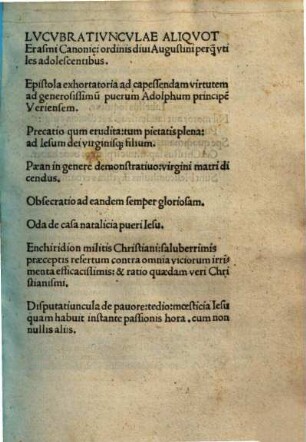 LVCVBRATIVNCVLAE ALIQVOT
Erasmi Canonici ordinis diui Augustini perq̃ vti
les adolescentibus.
Epistola exhortatoria ad capessendam virtutem
ad generosissimũ puerum Adolphum principẽ
Veriensem.
Precatio qum erudita: tum pietatis plena:
ad Iesum dei virginisq; filium.
Pæan in genere demonstratiuo: virgini matri di
cendus.
Obsecratio ad eandem semper gloriosam.
Oda de casa natalicia pueri Iesu.
Enchiridion militis Christiani: saluberrimis
præceptis refertum contra omnia viciorum irri
menta efficacissimis: & ratio quædam veri Chri
stianismi.
Disputatiuncula de pauore: tedio: mœsticia Iesu
quam habuit instante passionis hora. cum non
nullis aliis.